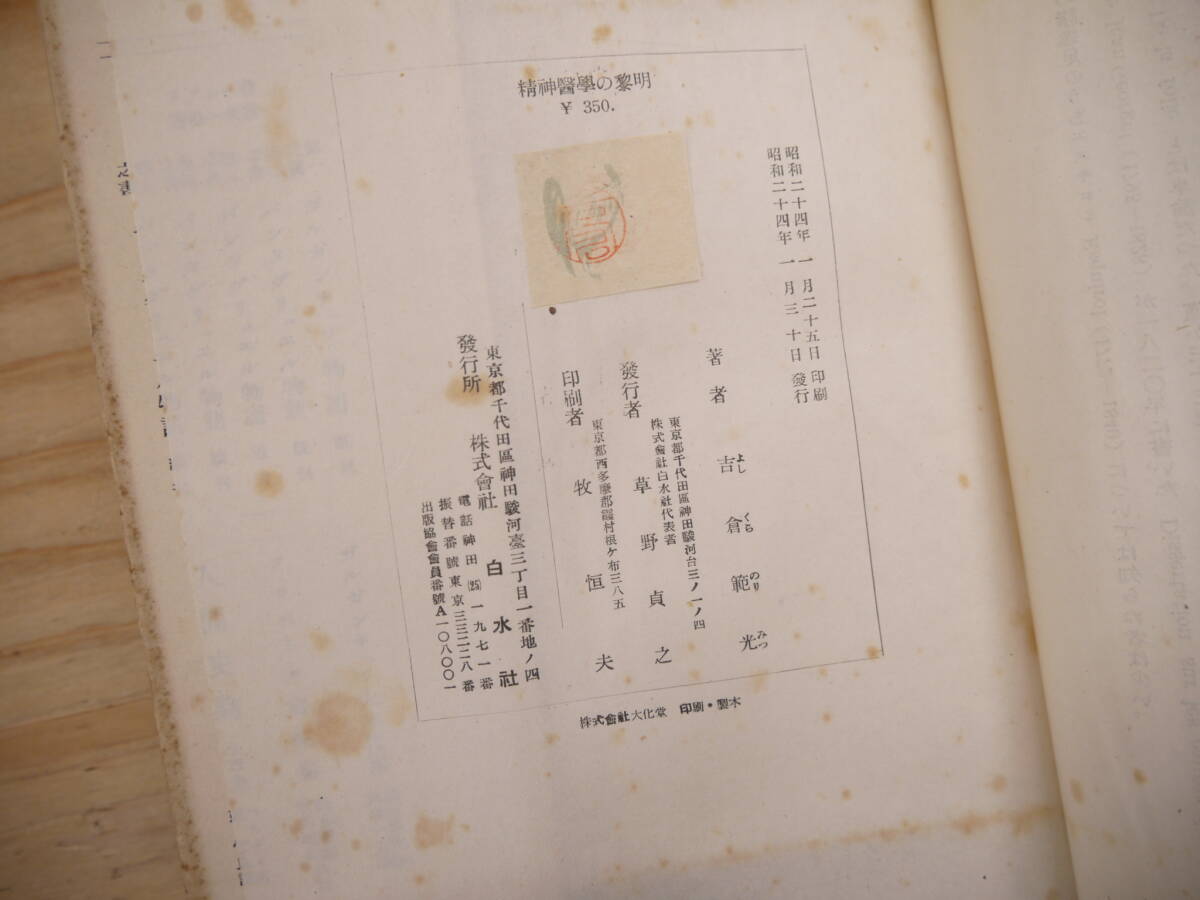 精神醫學の黎明
¥ 350.
昭和二十四年 一月二十五日 印刷
昭和二十四年 一月三十日 發行
著者 吉倉範光
よし くら のり みつ
東京都千代田區神田駿河台三ノ一ノ四
株式會社白水社代表者
發行者 草野貞之
東京都西多摩郡霞村根ケ布三八五
印刷者 牧恒夫
東京都千代田區神田駿河臺三丁目一番地ノ四
發行所 株式會社 白水社
電話神田(25)一九七一番
振替番號東京三三二二八番
出版協會會員番號A一〇八〇〇一
株式會社大化堂 印刷・製本